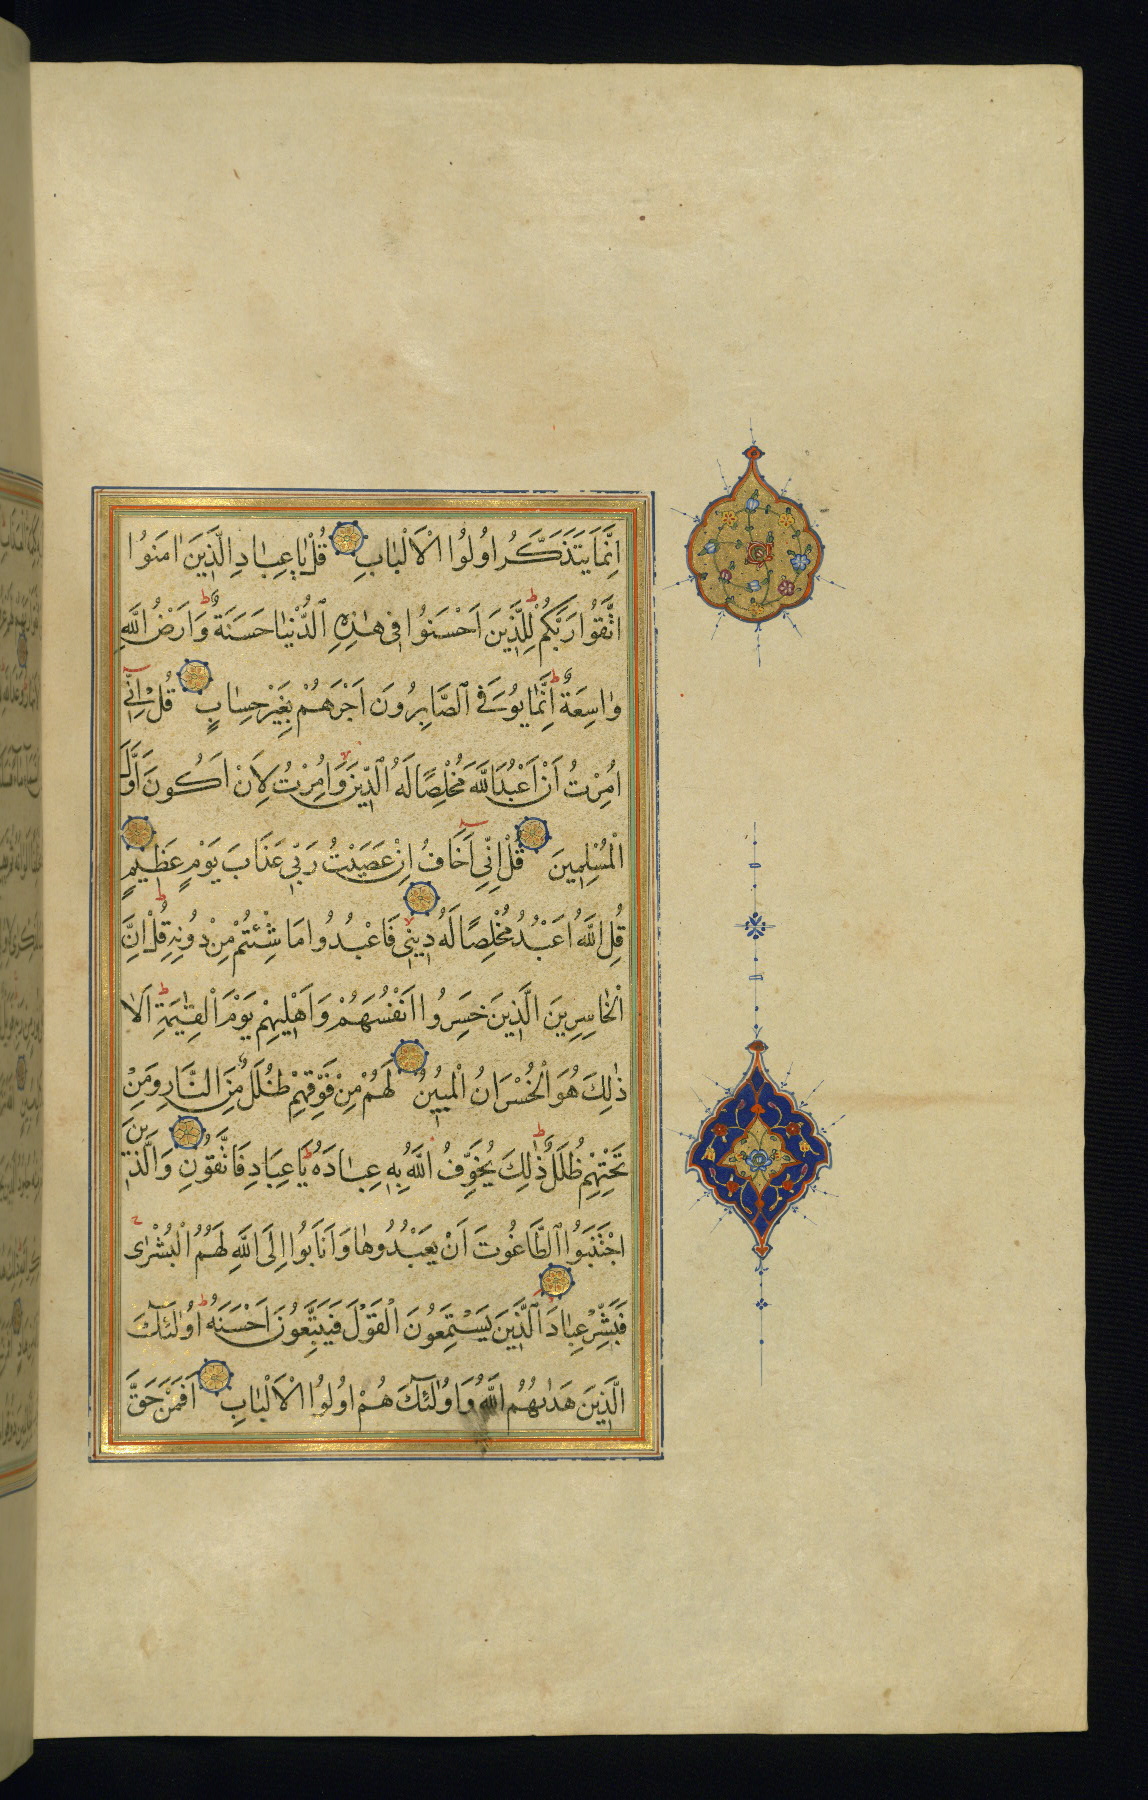 اِنَّمَا يَتَذَكَّرُ اُولُوا الْاَلْبَابِ قُلْ يَا عِبَادِ الَّذِينَ اٰمَنُوا
اتَّقُوا رَبَّكُمْ لِلَّذِينَ اَحْسَنُوا فِي هٰذِهِ الدُّنْيَا حَسَنَةٌ وَاَرْضُ اللّٰهِ
وَاسِعَةٌ اِنَّمَا يُوَفَّى الصَّابِرُونَ اَجْرَهُمْ بِغَيْرِ حِسَابٍ قُلْ اِنِّي
اُمِرْتُ اَنْ اَعْبُدَ اللّٰهَ مُخْلِصًا لَهُ الدِّينَ وَاُمِرْتُ لِاَنْ اَكُونَ اَوَّلَ
الْمُسْلِمِينَ قُلْ اِنِّي اَخَافُ اِنْ عَصَيْتُ رَبِّي عَذَابَ يَوْمٍ عَظِيمٍ
قُلِ اللّٰهَ اَعْبُدُ مُخْلِصًا لَهُ دِينِي فَاعْبُدُوا مَا شِئْتُمْ مِنْ دُونِهِ قُلْ اِنَّ
الْخَاسِرِينَ الَّذِينَ خَسِرُوا اَنْفُسَهُمْ وَاَهْلِيهِمْ يَوْمَ الْقِيٰمَةِ اَلَا
ذٰلِكَ هُوَ الْخُسْرَانُ الْمُبِينُ لَهُمْ مِنْ فَوْقِهِمْ ظُلَلٌ مِنَ النَّارِ وَمِنْ
تَحْتِهِمْ ظُلَلٌ ذٰلِكَ يُخَوِّفُ اللّٰهُ بِهِ عِبَادَهُ يَا عِبَادِ فَاتَّقُونِ وَالَّذِينَ
اجْتَنَبُوا الطَّاغُوتَ اَنْ يَعْبُدُوهَا وَاَنَابُوا اِلَى اللّٰهِ لَهُمُ الْبُشْرٰى
فَبَشِّرْ عِبَادِ الَّذِينَ يَسْتَمِعُونَ الْقَوْلَ فَيَتَّبِعُونَ اَحْسَنَهُ اُولٰئِكَ
الَّذِينَ هَدٰيهُمُ اللّٰهُ وَاُولٰئِكَ هُمْ اُولُوا الْاَلْبَابِ اَفَمَنْ حَقَّ